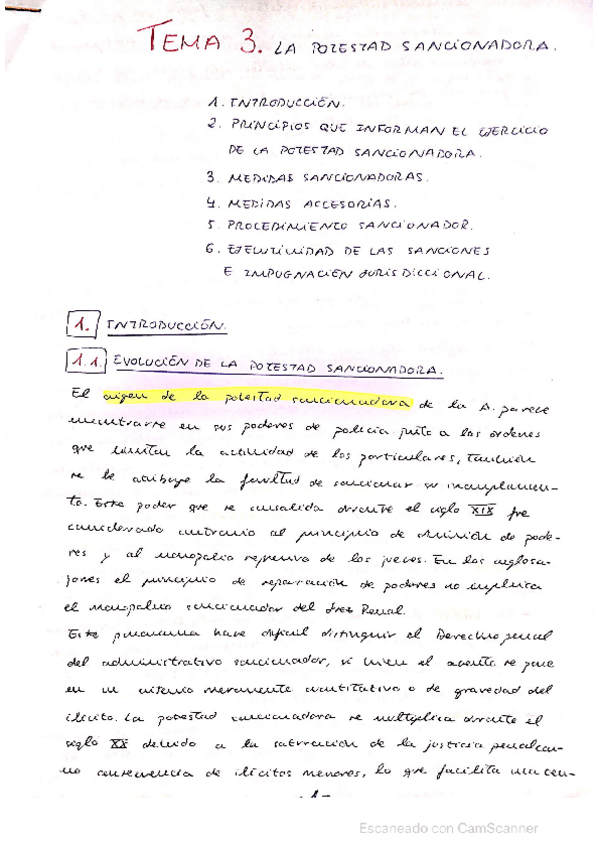 TEMA 3. LA POTESTAD SANCIONADORA.
1. INTRODUCCIÓN.
2. PRINCIPIOS QUE INFORMAN EL EJERCICIO
DE LA POTESTAD SANCIONADORA.
3. MEDIDAS SANCIONADORAS.
4. MEDIDAS ACCESORIAS.
5. PROCEDIMIENTO SANCIONADOR.
6. EJECUTIVIDAD DE LAS SANCIONES
E IMPUGNACIÓN JURISDICCIONAL.
1. INTRODUCCIÓN.
1.1. EVOLUCIÓN DE LA POTESTAD SANCIONADORA.
El origen de la potestad sancionadora de la A. parece
encontrarse en sus poderes de policía junto a las órdenes
que limitan la actividad de los particulares, también
se le atribuye la facultad de sancionar su incumplimien-
to. Este poder que se consolida durante el siglo XIX fue
considerado contrario al principio de división de pode-
res y al monopolio represivo de los jueces. En los anglosa-
jones el principio de separación de poderes no implica
el monopolio sancionador del Juez Penal.
Este panorama hace difícil distinguir el Derecho penal
del administrativo sancionador, si bien el acento se pone
en un criterio meramente cuantitativo o de gravedad del
ilícito. La potestad sancionadora se multiplica durante el
siglo XX debido a la saturación de la justicia penal co-
mo consecuencia de ilícitos menores, lo que facilita una cen-
- 1 -
Escaneado con CamScanner